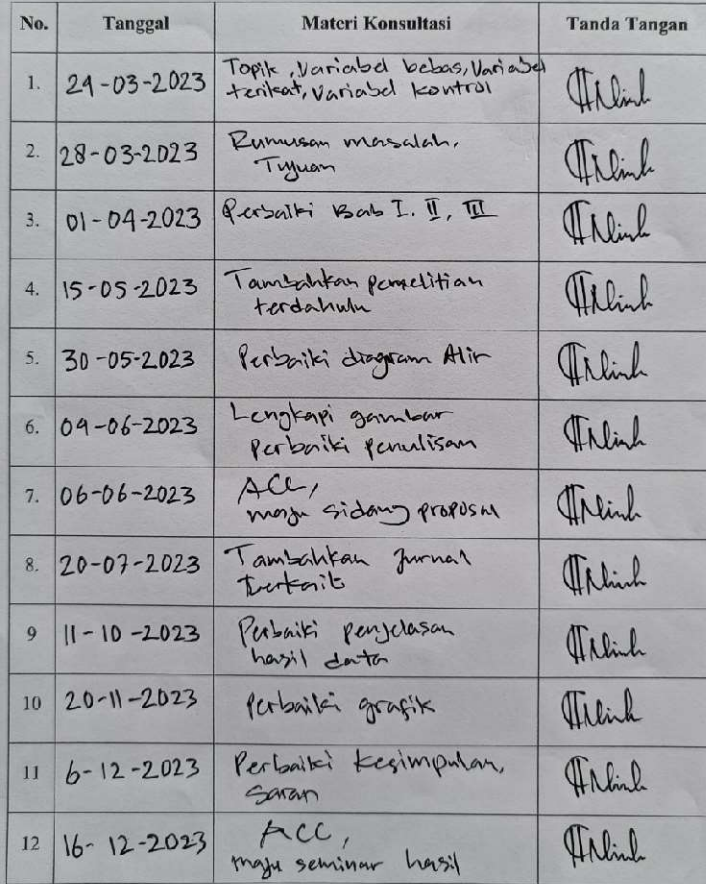 No. Tanggal Materi Konsultasi Tanda Tangan
1. 29-03-2023 Topik, Variabel bebas, Variabel
terikat, Variabel kontrol
2. 28-03-2023 Rumusan masalah,
Tujuan
3. 01-04-2023 Perbaiki Bab I. II, III
4. 15-05-2023 Tambahkan penelitian
terdahulu
5. 30-05-2023 Perbaiki diagram Alir
6. 04-06-2023 Lengkapi gambar
Perbaiki penulisan
7. 06-06-2023 ACC,
maju sidang proposal
8. 20-07-2023 Tambahkan Jurnal
terkait
9 11-10-2023 Perbaiki penjelasan
hasil data
10 20-11-2023 Perbaiki grafik
11 6-12-2023 Perbaiki Kesimpulan,
Saran
12 16-12-2023 ACC,
maju seminar hasil